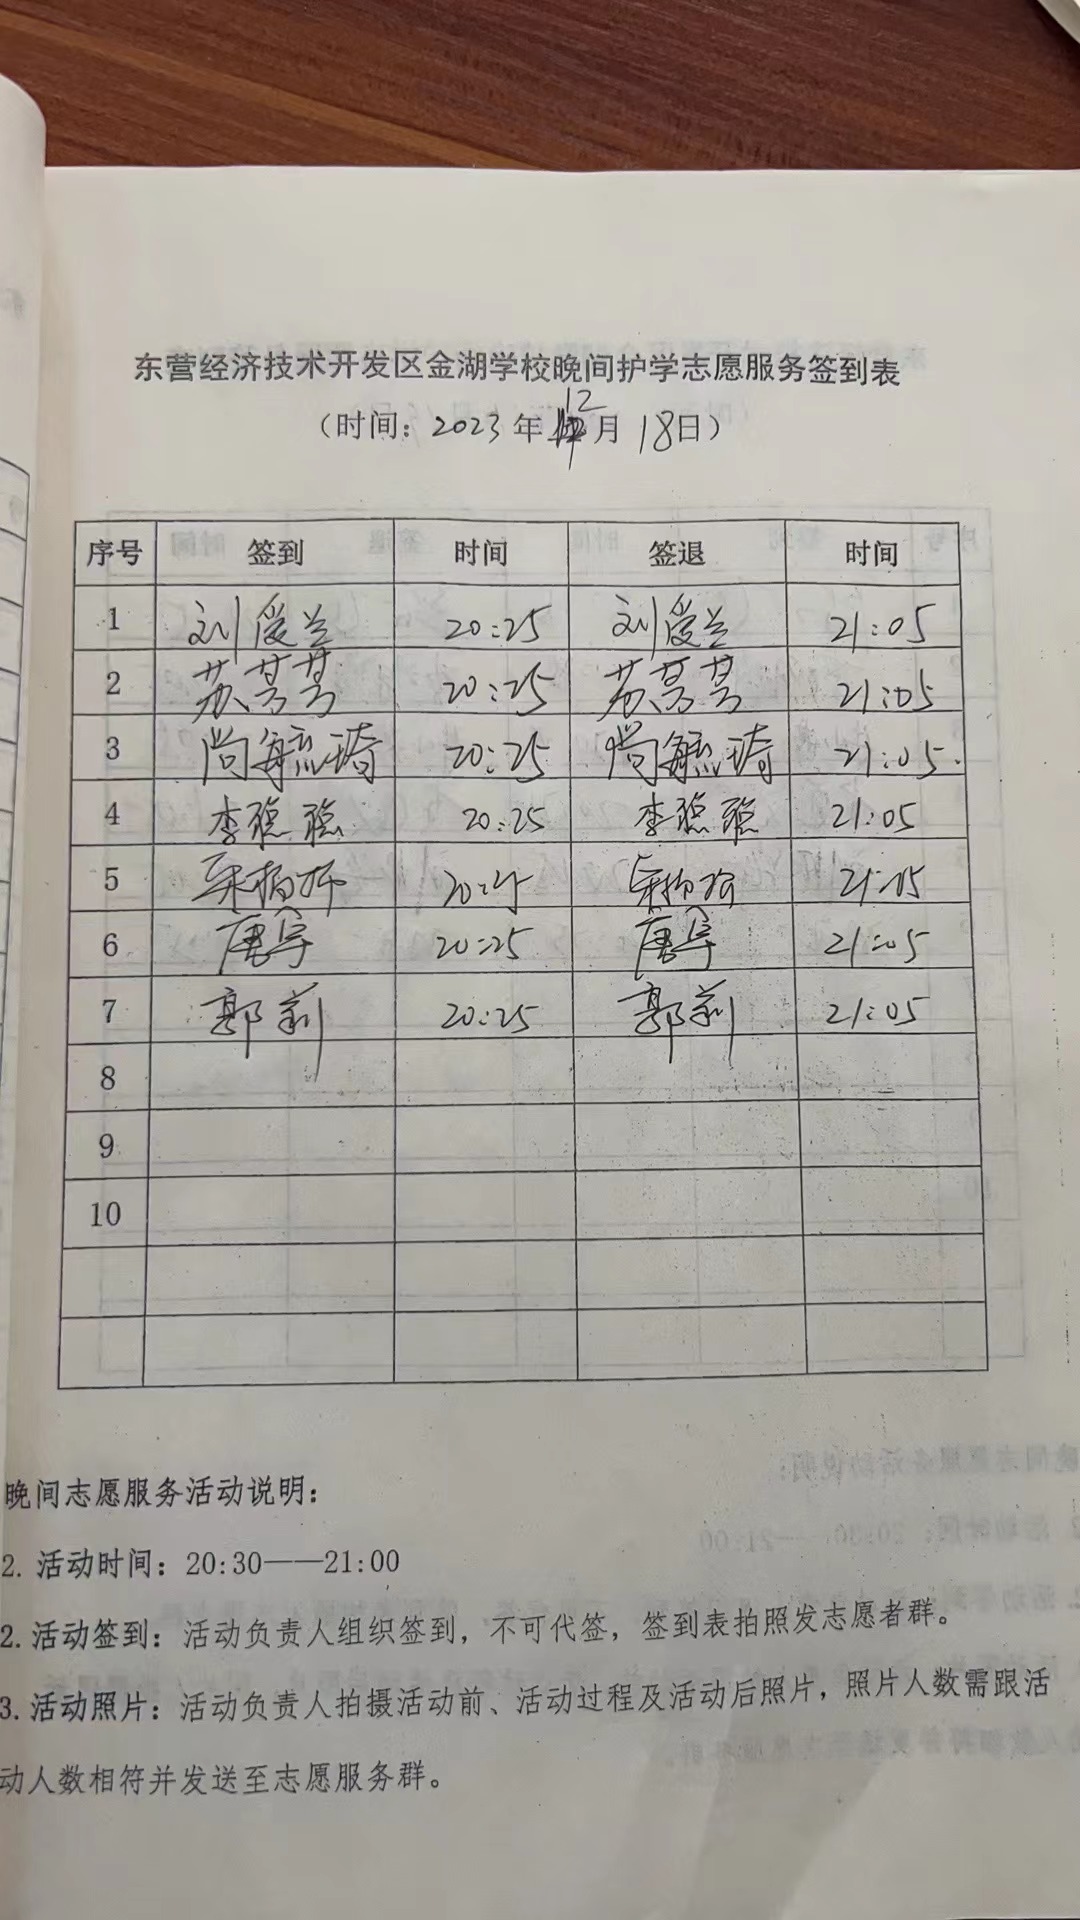 东营经济技术开发区金湖学校晚间护学志愿服务签到表
(时间: 2023 年 12 月 18日)
序号 签到 时间 签退 时间
1 刘爱兰 20:25 刘爱兰 21:05
2 苏芳芳 20:25 苏芳芳 21:05
3 尚毓琦 20:25 尚毓琦 21:05
4 李聪聪 20:25 李聪聪 21:05
5 21:05
6 唐宇 20:25 唐宇 21:05
7 郭莉 20:25 郭莉 21:05
8
9
10
晚间志愿服务活动说明:
2. 活动时间: 20:30——21:00
2. 活动签到: 活动负责人组织签到, 不可代签, 签到表拍照发志愿者群。
3. 活动照片: 活动负责人拍摄活动前、活动过程及活动后照片, 照片人数需跟活
动人数相符并发送至志愿服务群。